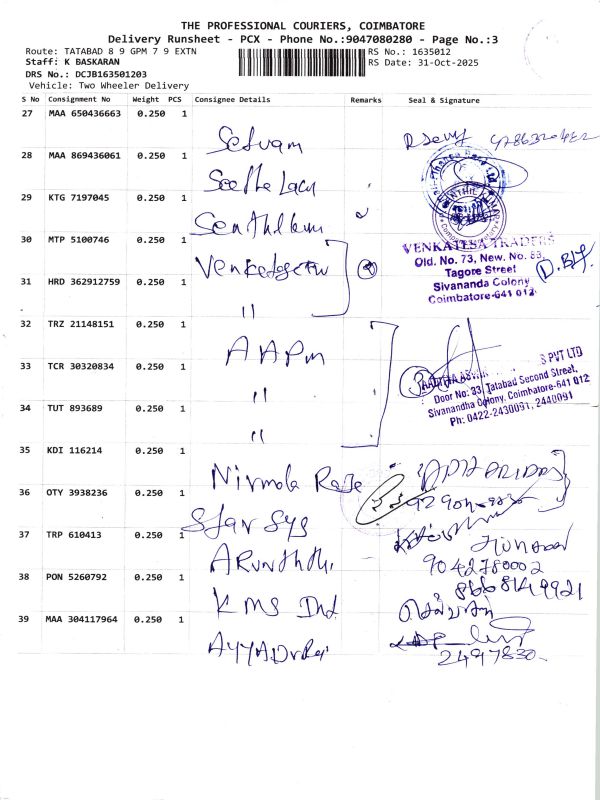 THE PROFESSIONAL COURIERS, COIMBATORE
Delivery Runsheet - PCX - Phone No.:9047080280 - Page No.:3
Route: TATABAD 8 9 GPM 7 9 EXTN
RS No.: 1635012
Staff: K BASKARAN
RS Date: 31-Oct-2025
DRS No.: DCJB163501203
Vehicle: Two Wheeler Delivery
S No Consignment No Weight PCS Consignee Details Remarks Seal & Signature
27 MAA 650436663 0.250 1
Selvam
28 MAA 869436061 0.250 1
29 KTG 7197045 0.250 1
Senthil
30 MTP 5100746 0.250 1
VENKATESA TRADERS
Old. No. 73, New. No. 83,
Tagore Street
Sivananda Colony
Coimbatore-641 012
31 HRD 362912759 0.250 1
"
32 TRZ 21148151 0.250 1
AAPM
33 TCR 30320834 0.250 1
"
3
PVT LTD
Door No: 33, Tatabad Second Street,
Sivanandha Colony, Coimbatore-641 012
Ph: 0422-2430091, 2440091
34 TUT 893689 0.250 1
"
35 KDI 116214 0.250 1
Nirmala
36 OTY 3938236 0.250 1
Star Sys
37 TRP 610413 0.250 1
9042780002
38 PON 5260792 0.250 1
KMS Ind
8668149921
39 MAA 304117964 0.250 1
AYYADURai
2497830